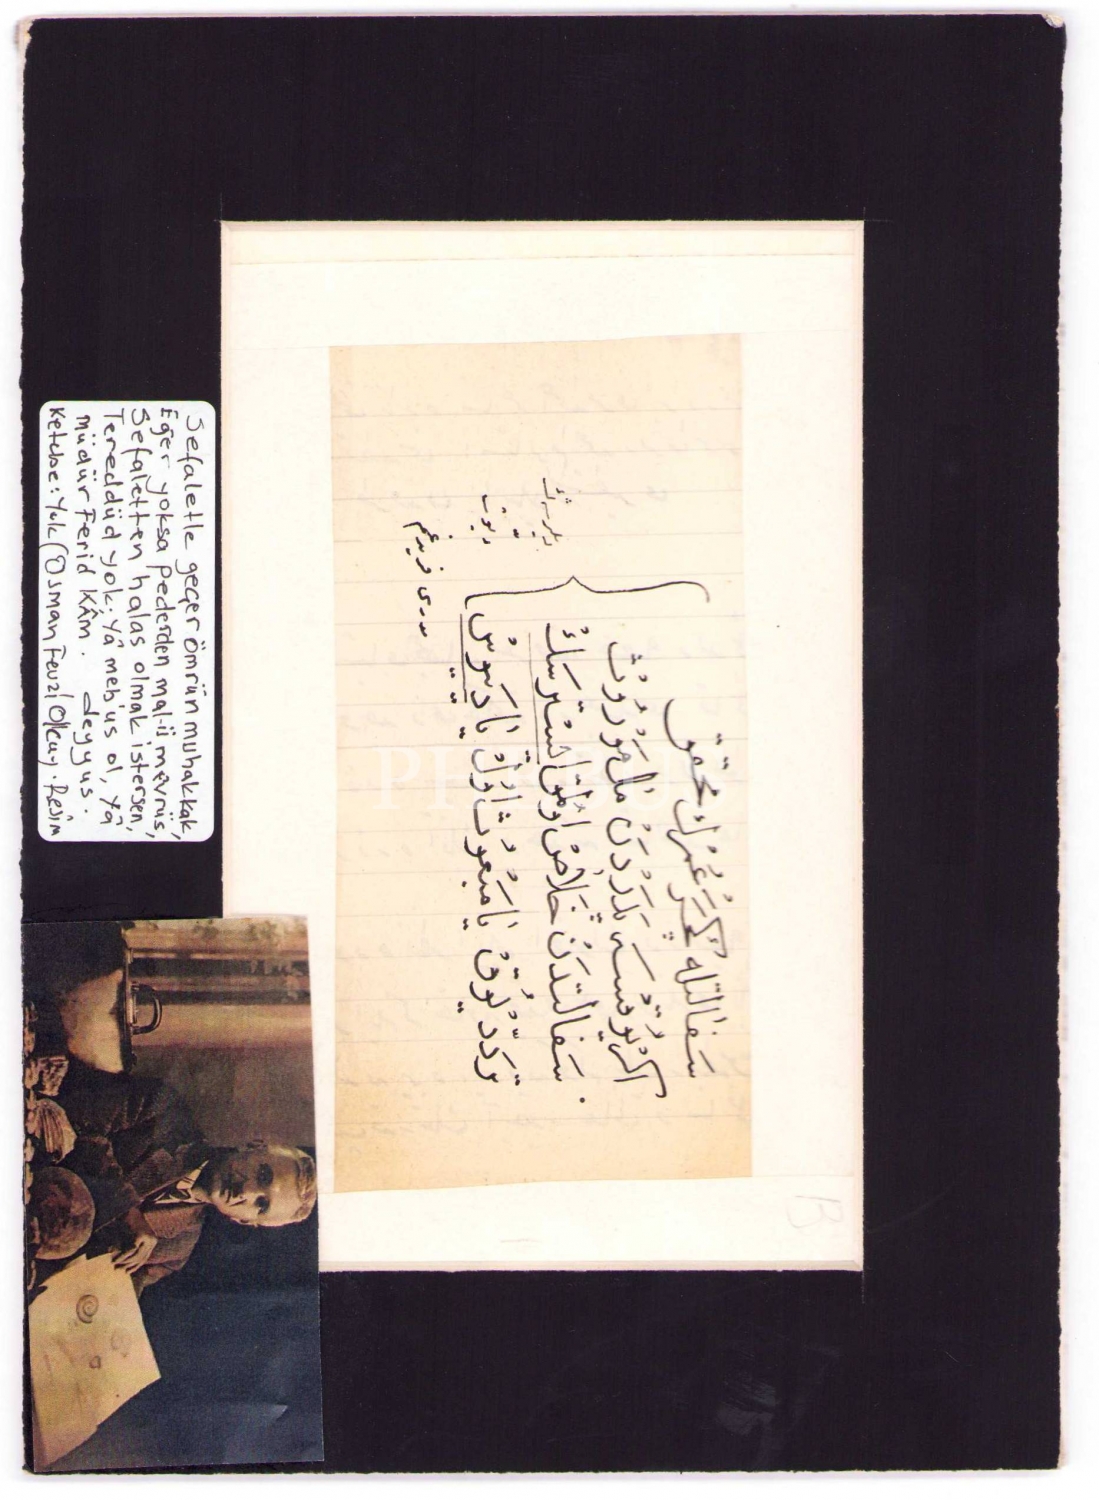 سَفالتله كچَر عُمرُك محقّق
اكر يوقسَه پَدَردَن مال مَورُوث
سَفالتدَن خَلاصْ اولمَق ايستَرسَك
تردّد يوق يا مبعوث اول يا دَيّوسْ
Sefaletle geçer ömrün muhakkak,
Eğer yoksa pederden mal-ü mevrüs,
Sefaletten halas olmak istersen,
Tereddüd yok: Yâ meb'us ol, yâ
deyyus.
Müdür Ferid KÂM.
Ketebe: Yok (Osman Fevzi Olcay. Resim
PHEBUS